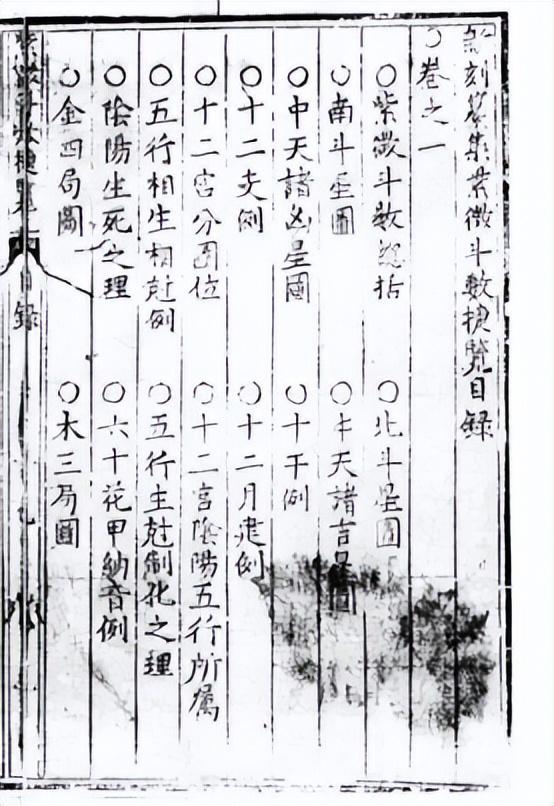 新刻纂集紫微斗數捷覽目錄
○卷之一
○紫微斗数緫括　○北斗星圖
○南斗星圖　○中天諸吉星圖
○中天諸凶星圖　○十干例
○十二支例　○十二月建例
○十二宮分圖位　○十二宮陰陽五行所屬
○五行相生相尅例　○五行生尅制化之理
○陰陽生死之理　○六十花甲納音例
○金四局圖　○木三局圖
紫微斗数捷覽　目錄